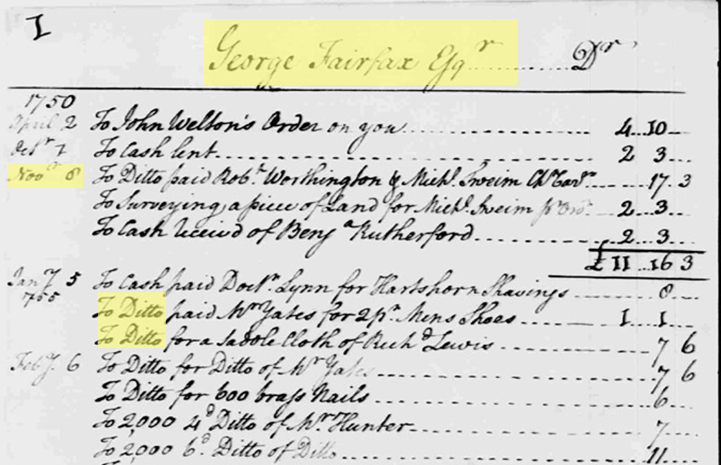 I
George Fairfax Esqr ........ Dr
1750
April 2 To John Welton's Order on you .... 4 .. 10 ..
Octr 7 To Cash lent .... 2 .. 3 ..
Novr 8 To Ditto paid Robt. Worthington & Michl. Sweim .... 17 .. 3
To Surveying a piece of Land for Michl. Sweim .... 2 .. 3 ..
To Cash receivd of Benja Rutherford .... 2 .. 3 ..
£ 11 .. 16 .. 3
Jany 5 To Cash paid Doctr. Lynn for Hartshorn Shavings .... 8 ..
1755 To Ditto paid Mr Yates for 2 pr. Mens Shoes .... 1 .. 1 ..
To Ditto for a Saddle Cloth of Richd Lewis .... 7 .. 6
Feby. 6 To Ditto for Ditto of Mr Yates .... 7 .. 6
To Ditto for 600 brass Nails .... 6 ..
To 2,000 4d Ditto of Mr Hunter .... 7 ..
To 2,000 6d. Ditto of Ditto .... 11 ..